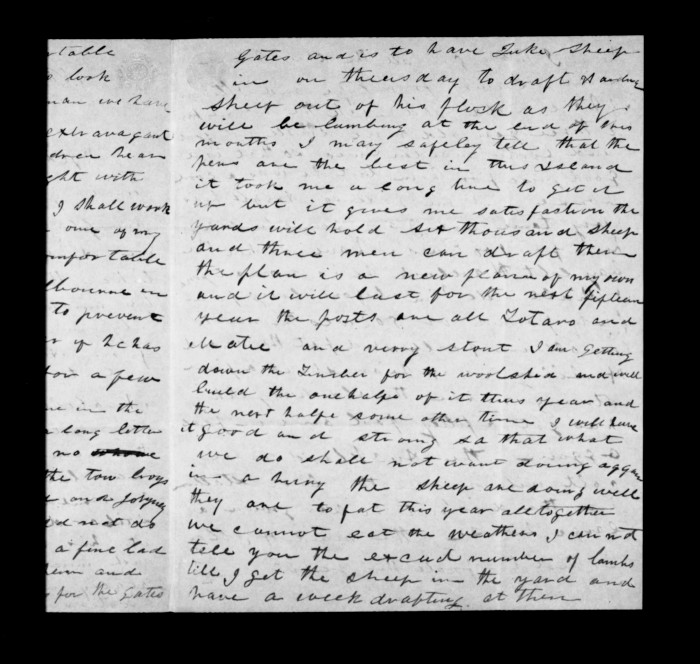 table
look
man we have
extravagant
dren hear
ght with
I shall work
one of my
comfortable
lbourne in
to prevent
r if he has
for a few
in the
long letter
no
the tow boys
and
d not do
a fine lad
and
for the Gates
Gates and is to have Luke Sheep
in on theursday to draft
sheep out of his flock as they
will be lumbing at the end of this
months I may safeley tell that the
pens are the best in this Island
it took me a long time to get it
up but it gives me satesfastion the
yards will hold six thousand sheep
and three men can draft them
the plan is a new plan of my own
and it will last for the next fifteen
year the posts are all Totaro and
Matie and verry stout I am Getting
down the Timber for the woolshed and will
build the onehalfe of it thus year and
the next halfe some other time I will have
it good and strong sa that what
we do shall not want doing aggan
in a hurry the sheep are doing well
they are to fat this year alltogether
we cannot eat the weathers I can not
tell you the excact number of lambs
till I get the sheep in the yard and
have a week drafting at them